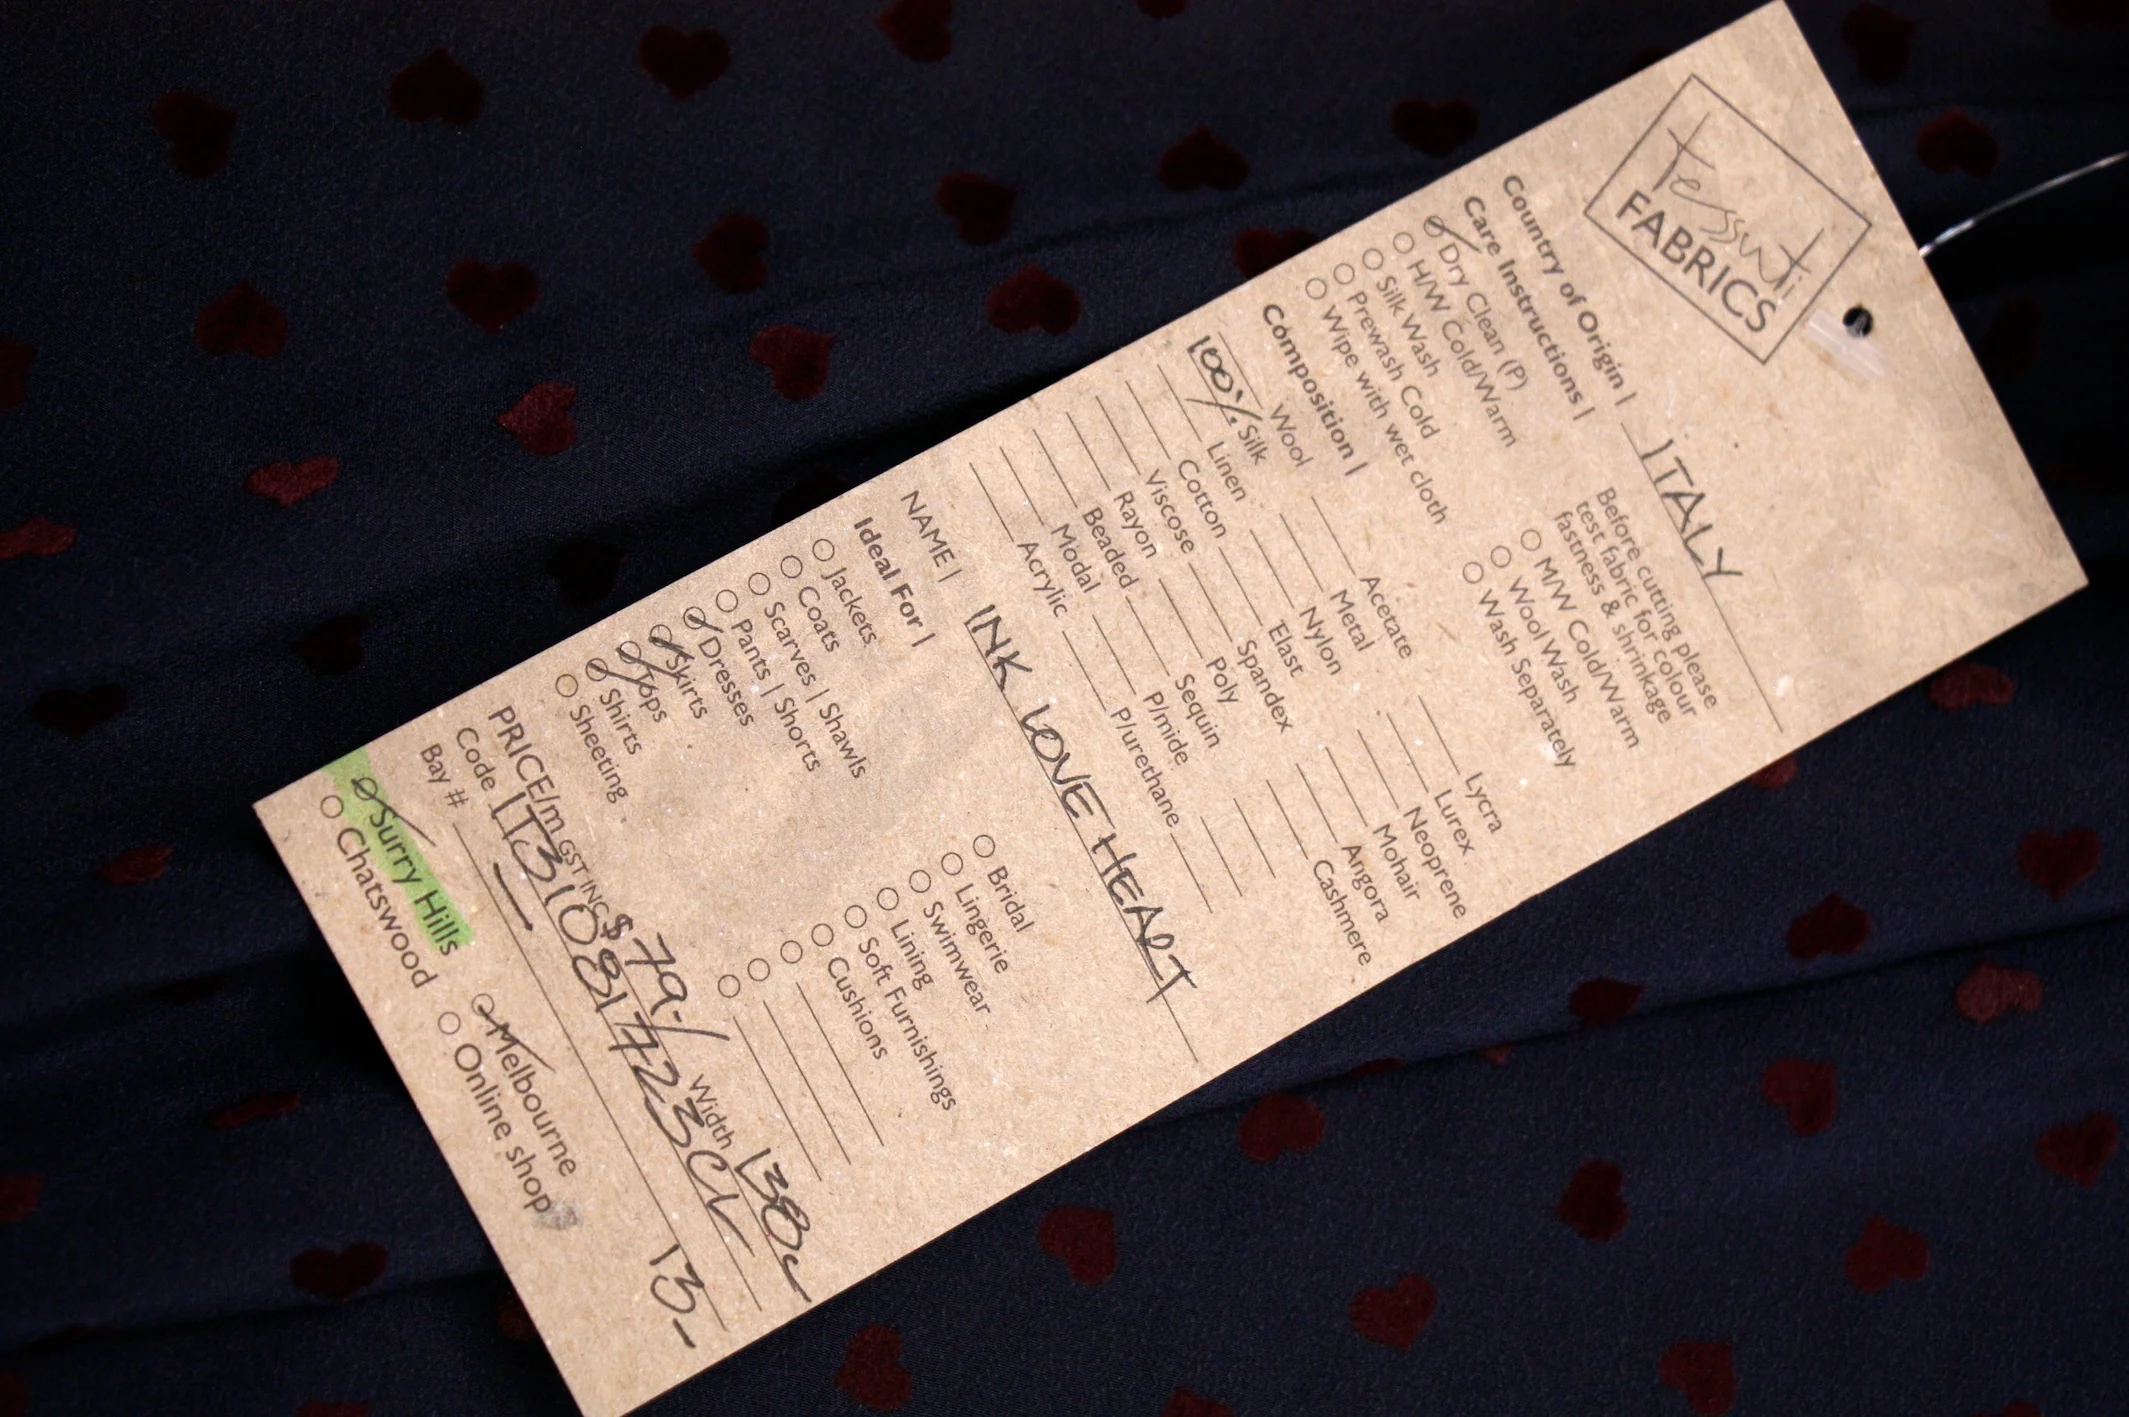 tessuti
FABRICS
Country of Origin | ITALY
Care Instructions |
Before cutting please
test fabric for colour
fastness & shrinkage
Dry Clean (P)
H/W Cold/Warm
Silk Wash
Prewash Cold
Wipe with wet cloth
M/W Cold/Warm
Wool Wash
Wash Separately
Composition |
Wool Acetate Lycra
100% Silk Metal Lurex
Linen Nylon Neoprene
Cotton Elast Mohair
Viscose Spandex Angora
Rayon Poly Cashmere
Beaded Sequin
Modal P/mide
Acrylic P/urethane
NAME | INK LOVE HEART
Ideal For |
Jackets
Coats
Scarves | Shawls
Pants | Shorts
Dresses
Skirts
Tops
Shirts
Sheeting
Bridal
Lingerie
Swimwear
Lining
Soft Furnishings
Cushions
PRICE/m GST INC $79./ Width 138c
Code
Bay # 13-
Surry Hills Melbourne
Chatswood Online shop